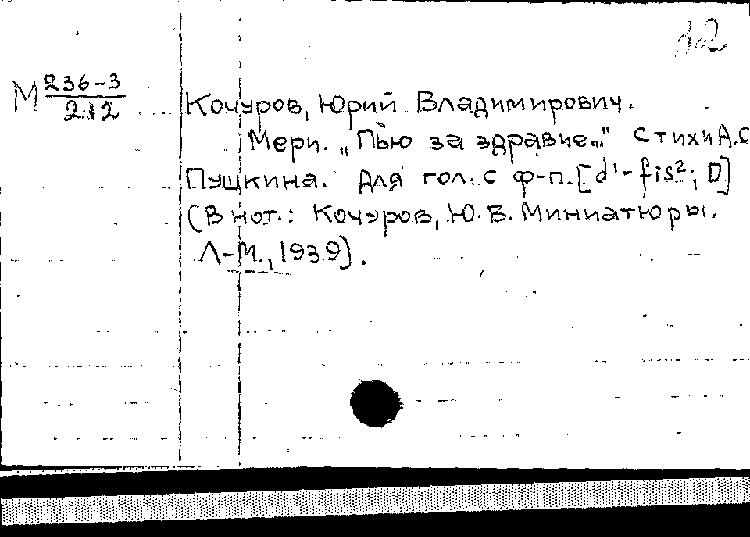 М 236-3
212
Кочуров, Юрий Владимирович.
Мери. „Пью за здравие..." Стихи А.С
Пушкина. Для гол. с ф-п. [d¹-fis²; D]
(В нот.: Кочуров, Ю.В. Миниатюры.
Л-М., 1939).